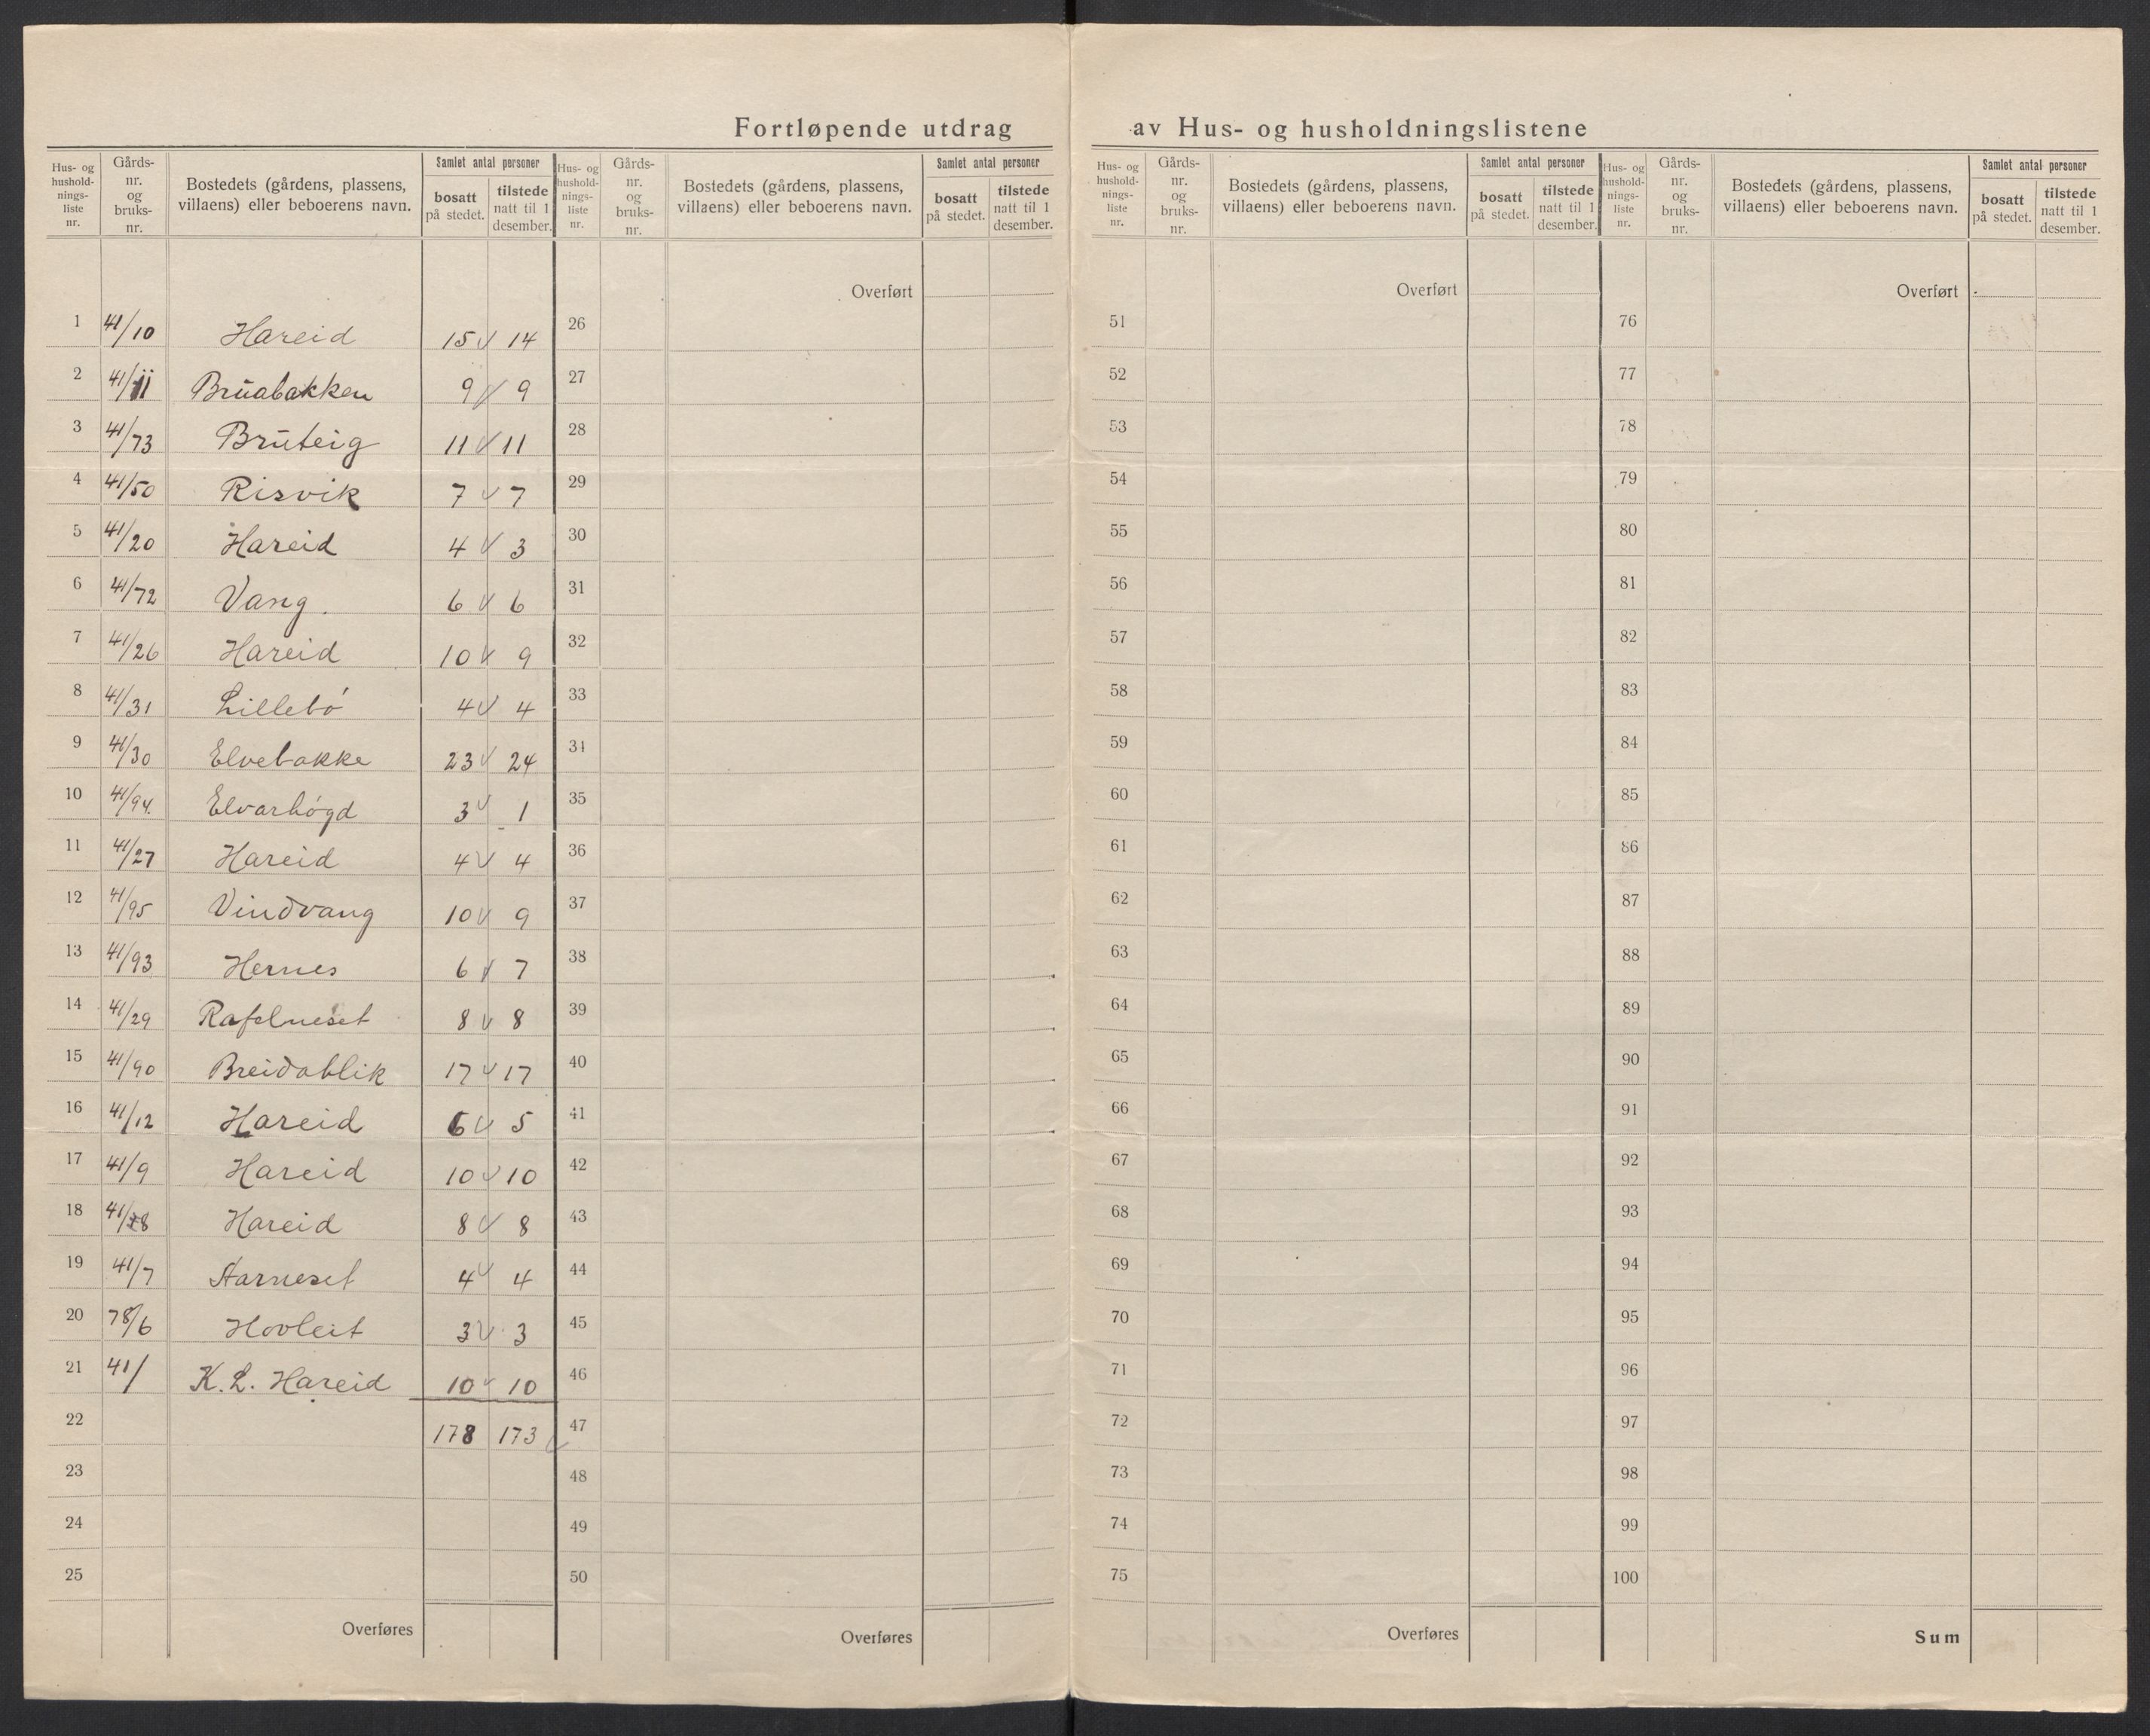 Fortløpende utdrag av Hus- og husholdningslistene
Hus- og hushold-nings-liste nr. Gårds-nr. og bruks-nr. Bostedets (gårdens, plassens, villaens) eller beboerens navn. Samlet antal personer bosatt på stedet. tilstede natt til 1 desember.
Hus- og hushold-nings-liste nr. Gårds-nr. og bruks-nr. Bostedets (gårdens, plassens, villaens) eller beboerens navn. Samlet antal personer bosatt på stedet. tilstede natt til 1 desember.
Hus- og hushold-nings-liste nr. Gårds-nr. og bruks-nr. Bostedets (gårdens, plassens, villaens) eller beboerens navn. Samlet antal personer bosatt på stedet. tilstede natt til 1 desember.
Hus- og hushold-nings-liste nr. Gårds-nr. og bruks-nr. Bostedets (gårdens, plassens, villaens) eller beboerens navn. Samlet antal personer bosatt på stedet. tilstede natt til 1 desember.
Overført Overført Overført
1 41/10 Hareid 15 14 26 51 76
2 41/11 Brūabakken 9 9 27 52 77
3 41/73 Brūteig 11 11 28 53 78
4 41/50 Risvik 7 7 29 54 79
5 41/20 Hareid 4 3 30 55 80
6 41/72 Vang. 6 6 31 56 81
7 41/26 Hareid 10 9 32 57 82
8 41/31 Lillebó 4 4 33 58 83
9 41/30 Elvebakke 23 24 34 59 84
10 41/94. Elvarhógd 3 1 35 60 85
11 41/27 Hareid 4 4 36 61 86
12 41/95 Vindvang 10 9 37 62 87
13 41/93 Hernes 6 7 38 63 88
14 41/29 Rafelneset 8 8 39 64 89
15 41/90 Breidablik 17 17 40 65 90
16 41/12 Hareid 6 5 41 66 91
17 41/9 Hareid 10 10 42 67 92
18 Hareid 8 8 43 68 93
19 41/7 Starneset 4 4 44 69 94
20 78/6 Hovleit 3 3 45 70 95
21 41/ K. L. Hareid 10 10 46 71 96
22 178 173 47 72 97
23 48 73 98
24 49 74 99
25 50 75 100
Overføres Overføres Overføres Sum